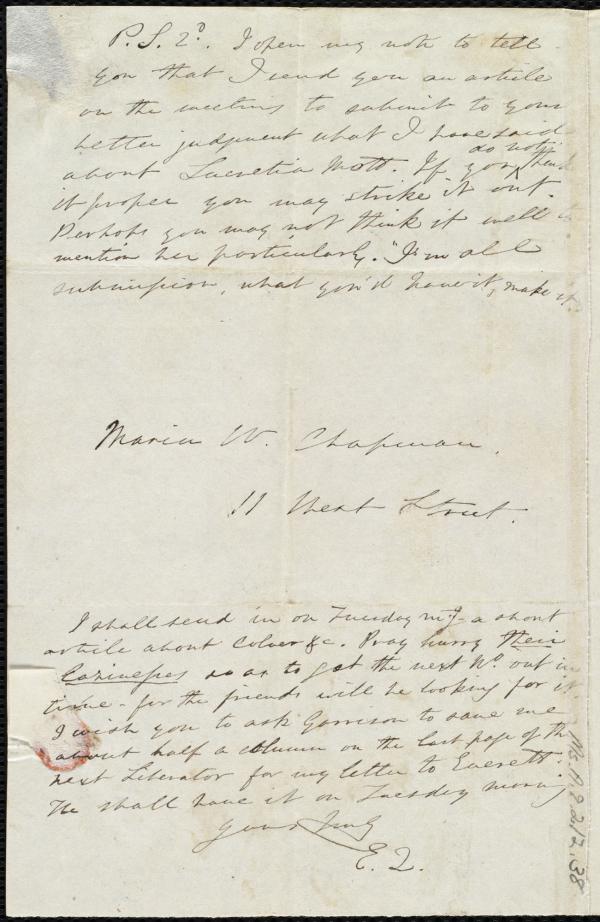 P.S. 2º. I open my note to tell
you that I send you an article
on the meeting to submit to your
better judgment what I have said
about Lucretia Mott. If you do not think
it proper you may strike it out.
Perhaps you may not think it well to
mention her particularly. "I'm all
submission, what you'd have it, make it."
Maria W. Chapman.
11 West Street.
I shall send in on Tuesday mg a short
article about Colver &c. Pray hurry their
Lazinesses so as to get the next No. out in
time - for the friends will be looking for it.
I wish you to ask Garrison to save me
about half a column on the last page of the
next Liberator for my letter to Everett.
He shall have it on Tuesday morng
Yours truly
E. Q.
Ms. A. 9. 2. 12. 38